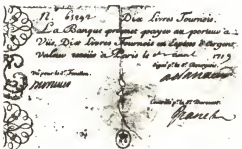 N.º 63292 Dix livres Tournois.
La Banque promet payer au porteur à
Vüe, Dix livres Tournois en Especes d'Argent,
valeur reçeüe à Paris le 1719
Signé p.r le S.r Bourgeois.
Vû pour le S.r Fenellon.
Controllé p.r le S.r Durevest.